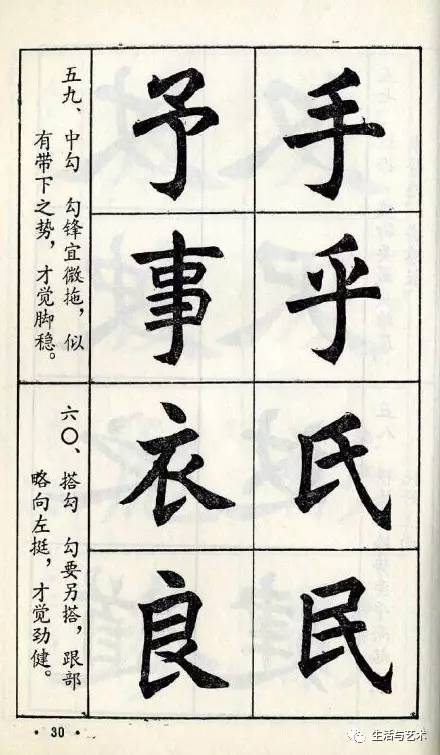 手
乎
氏
民
予
事
衣
良
五九、中勾 勾锋宜微拖，似
有带下之势，才觉脚稳。
六〇、搭勾 勾要另搭，跟部
略向左挺，才觉劲健。
· 30 ·
生活与艺术